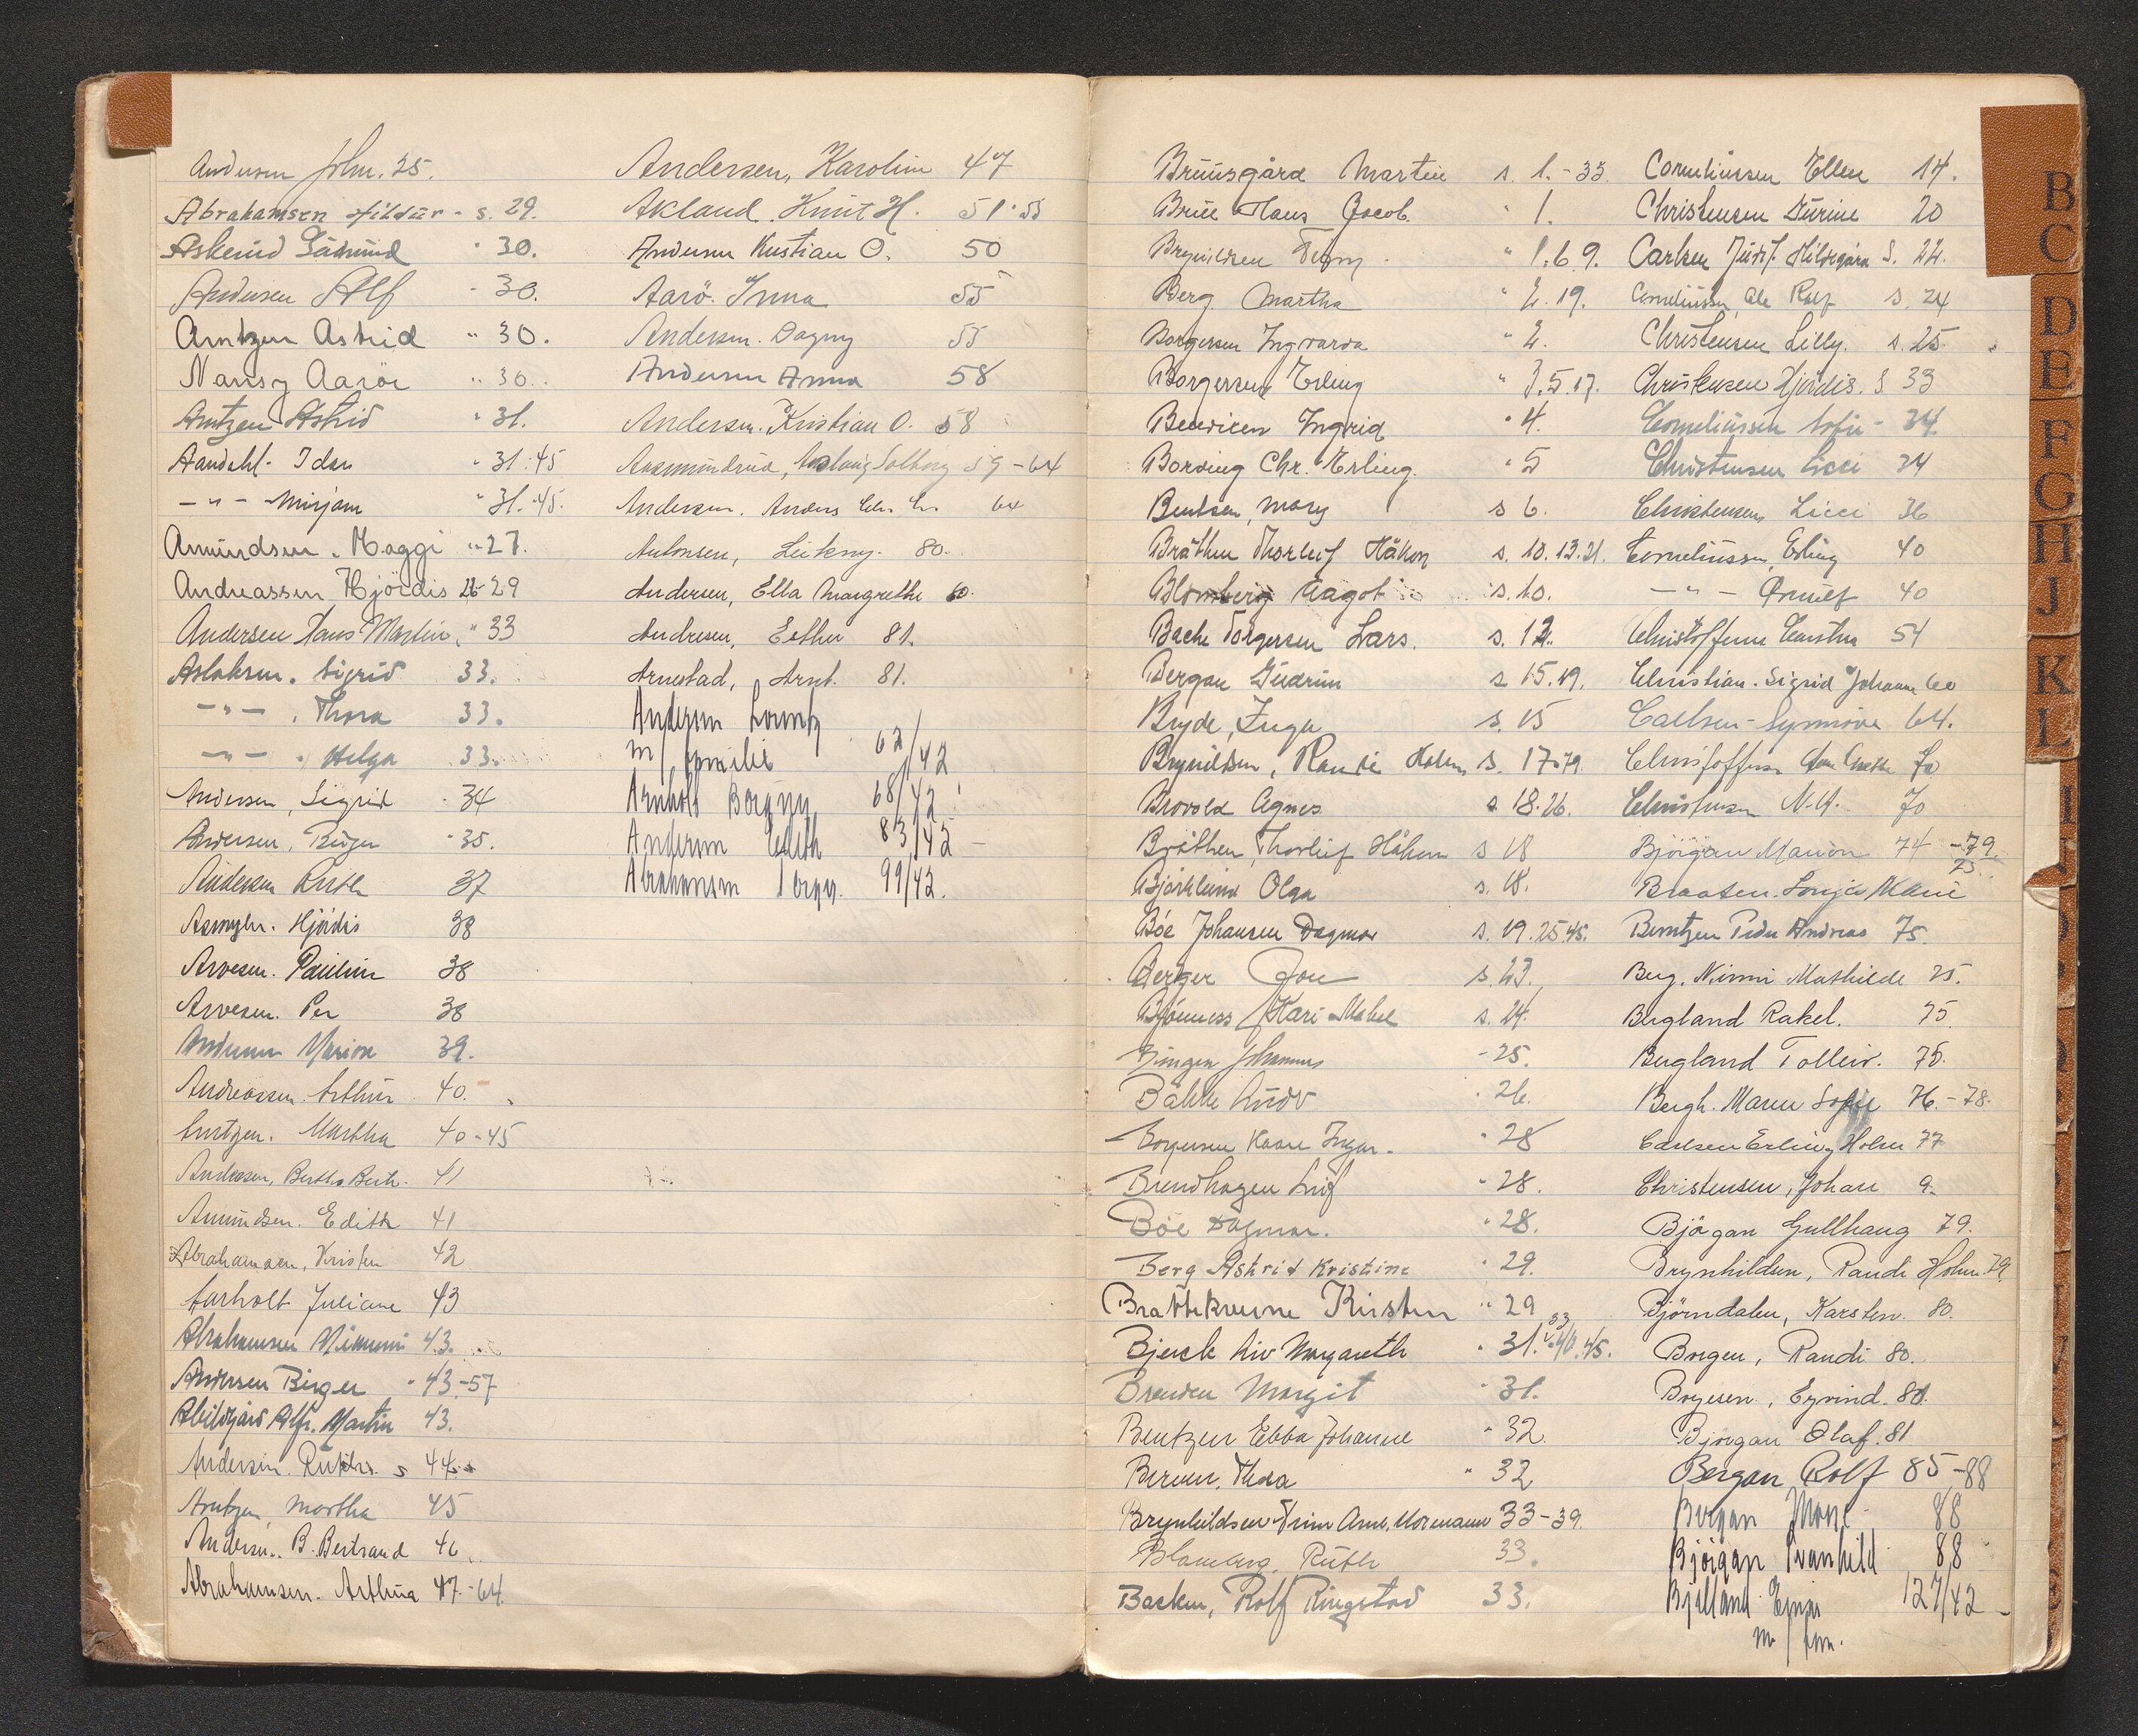 Andersen John. 25.
Abrahamsen Hildur - s. 29.
Askerud Gudmund " 30.
Andersen Alf - 30.
Arntzen Astrid " 30.
Nansy Aarøe " 30.
Arntzen Astrid " 31.
Aandahl. Idar " 31.45
- " - Mirjam " 31.45.
Amundsen. Maggi " 27.
Andreassen Hjördis 29
Andersen Hans Martin, " 33
Aslaksen. Sigrid 33.
- " - . Thora 33.
- " - . Helga 33.
Andersen, Sigrid - 34
Andersen, Birger - 35.
Andersen Ruth 37
Hjördis 38
Arvesen. Pauline 38
Arvesen. Per 38
Andersen Marion 39.
Andreassen. Arthur 40.
Arntzen. Martha 40-45
Andersen, Bertha 41
Amundsen. Edith 41
Abrahamsen, Kristen 42
Aarholt Juliane 43
Abrahamsen 43.
Andersen Birger - 43-57
Abildgård Alfr. Martin 43.
Andersen. s 44
Arntzen, Martha 45
Andersen. B. Bertrand 46
Abrahamsen. Arthur 47-64
Andersen, Karoline 47
Akland. Knut H. 51.55
Andersen Kristian O. 50
Aarö. Inna 55
Andersen. Dagny 55
Andersen Anna 58
Andersen. Kristian O. 58
Aasmundrud, Solborg 59-64
Andersen. Anders 64
Antonsen, 80.
Andersen, Ella Margrethe 60.
Andresen, Esther 81.
Arnestad, Arnt. 81.
Andersen Lorentz
m/ familie 62/42
Arnholt Borgny 68/42
Andersen Edith 83/42 -
Abrahamsen Torger. 99/42.
Bruusgård Martin s. 1.-33.
Brue Hans Jacob. " 1.
Brynildsen " 1.6.9.
Berg Martha " 2.19.
Borgersen Ingvarda " 2.
Borgersen Erling " 3.5.17.
Bendixen Ingrid " 4.
Bording Chr. Erling. " 5
Bentsen, Mary s 6.
Bråthen Thorleif Håkon s. 10.13.21.
Blomberg Aagot s. 10.
Bache Torgersen Lars. s. 12.
Bergan Gudrun s 15.19.
Bryde, Inga s. 15
Brynildsen, Randi Holm s. 17.79
Brovold Agnes s 18.26.
Bråthen, Thorleif Håkon s 18
Bjørklund Olga s. 18.
Böe Johansen Dagmar s. 19.25.45.
Berger s. 23.
Bjönness Kari Mabel s. 24.
Bingen Johannes - 25.
Bakke - 26.
Borgersen Kaare Ingar. - 28
Brendhagen Leif - 28.
Böe Dagmar. " 28.
Berg Astrid Kristine " 29.
Brattekverne Kirsten " 29
Bjerck Liv Margareth " 31. 33 40.45.
Brenden Margit " 31.
Bentzen Ebba Johanne " 32.
Thea " 32
Brynhildsen Arne, Normann 33-39.
Blomberg, Ruth 33.
Backen, Rolf Ringstad 33.
Corneliussen Ellen 14.
Christensen Gurine 20
Carlsen Hildegard S. 22.
Corneliussen, Ole Rolf s. 24
Christensen Lilly. s. 25
Christensen Hjördis. S 33
Corneliussen Sofie - 34
Christensen Licci 34
Christensen, Licci 36
Corneliussen, Erling 40
- " - Arnulf 40
Christoffersen 54
Christian. Sigrid Johanne 60
Carlsen - Synnöve 64.
Christoffersen 70
Christensen N.A. 70
Björgan Marion 74 - 79.
Braaten. Sonja Marie 75.
Berntzen Peder Andreas 75.
Berg. Mimmi Mathilde 75.
Bergland Rakel. 75
Bergland Tolleiv. 75.
Bergh. Maren Sofie 76.-78.
Carlsen Erling Holm 77
Christensen, Johan 9.
Björgan Gullhaug 79.
Brynhildsen, Randi Holm. 79
Björndalen, Karsten. 80.
Borgen, Randi 80.
Eyvind. 80.
Björgan Olaf. 81
Bergan Rolf 85-88
Bergan 88
Björgan Svanhild 88
Bjelland 127/42 -
m/ fam.
B
C
D
E
F
G
H
J
K
L